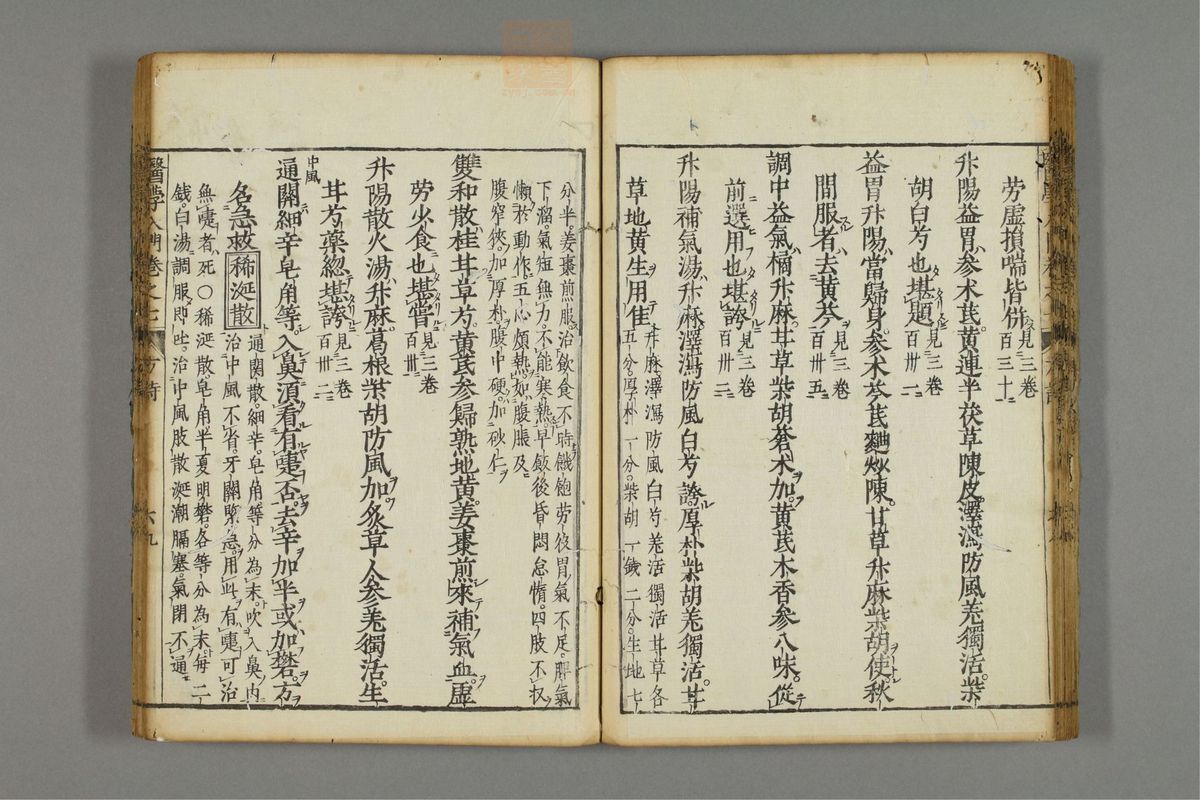 劳虚損喘皆佛見三卷百三十二
升陽益胃參术芪黄連半茯草陳皮澤瀉防風羌獨活柴
胡白芍也堪題見三卷百卅二
益胃升陽當歸身參术芩芪麯炊陳甘草升麻柴胡使秋
間服者去黄芩見三卷百卅五
調中益氣橘升麻甘草柴胡蒼术加黄芪木香參八味從
前選用也堪誇見三卷百卅二
升陽補氣湯升麻澤瀉防風白芍誇厚朴柴胡羌獨活甘
草地黄生用佳
升麻澤瀉防風白芍羌活獨活甘草各
五分厚朴一分柴胡一錢二分生地七
分半姜棗煎服治飲食不時餓飽劳役胃氣不足脾氣
下溜氣短無力不能寒熱早飯後昏悶怠惰四肢不收
懶於動作五心煩熱如腹脹及
腹窄狹加厚朴腹中硬加砂仁
雙和散桂甘草芍黄芪參歸熟地黄姜棗煎來補氣血虚
劳少食也堪嘗見三卷百卅
升陽散火湯升麻葛根柴胡防風加炙草人參羌獨活生
甘芍藥総堪誇見三卷百卅二
中風
通關細辛皂角等入鼻須看有嚏否去辛加半或加礬方
名急救稀涎散
通関散細辛皂角等分為末吹入鼻内
治中風不省牙關緊急用此有嚏可治
無嚏者死〇稀涎散皂角半夏明礬各等分為末每二
錢白湯調服即吐治中風肢散涎潮膈塞氣閉不通
醫學入門卷之七 方詩 六九